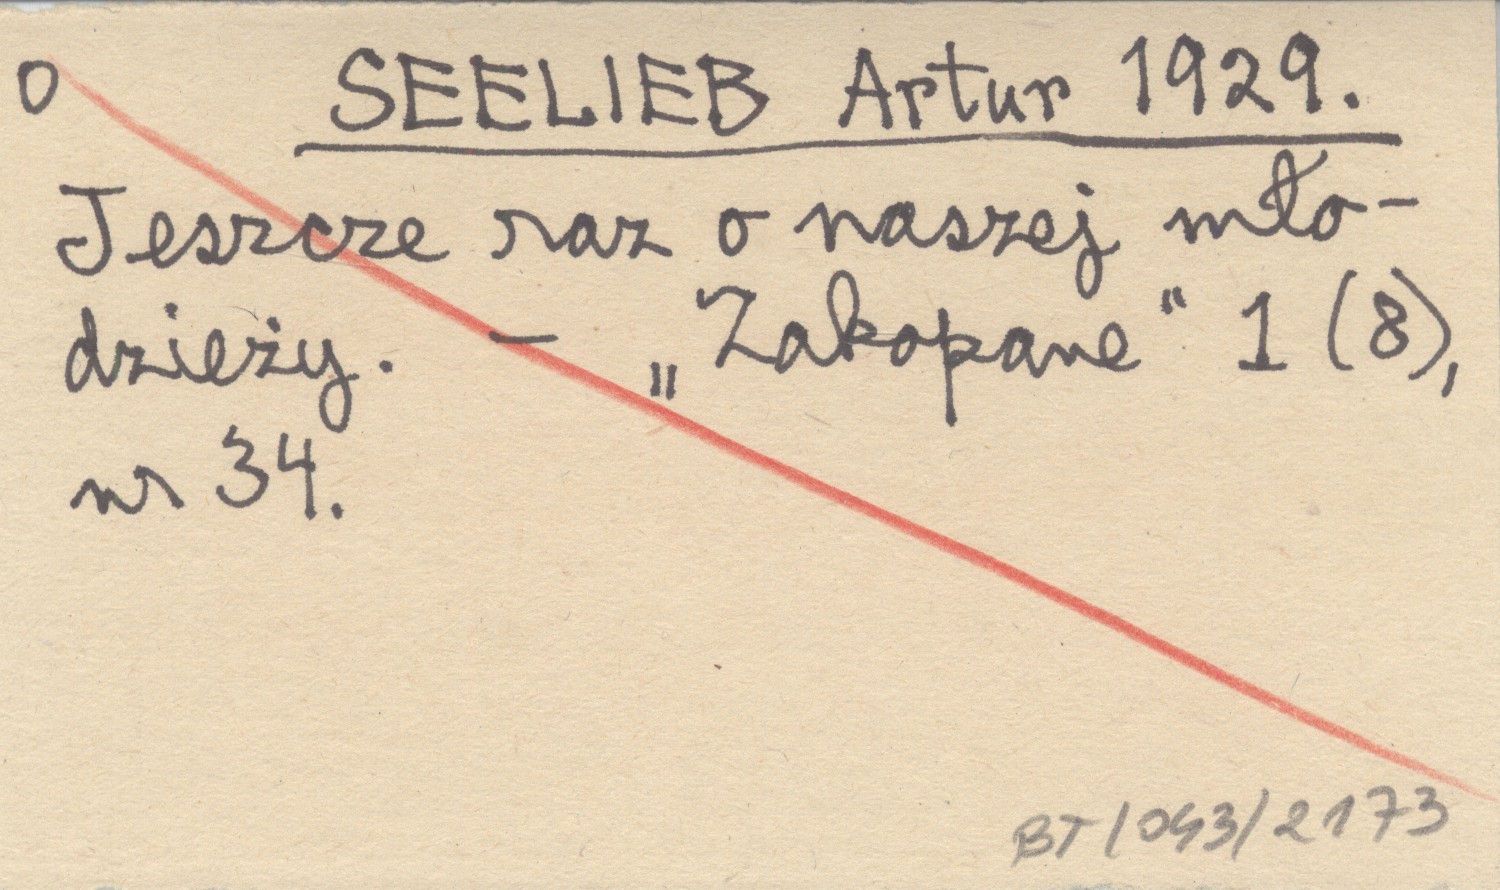 O SEELIEB Artur 1929.
Jeszcze raz o naszej mło-
dzieży. – „Zakopane" 1 (8),
nr 34.
BT/043/2173